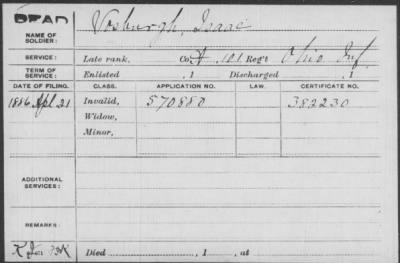 DEAD
NAME OF SOLDIER: Vosburgh, Isaac
SERVICE: Late rank, Co. 101 Reg't Ohio Inf.
TERM OF SERVICE: Enlisted , 1 Discharged , 1
DATE OF FILING. CLASS. APPLICATION NO. LAW. CERTIFICATE NO.
1886 Apl 21 Invalid, 570880 382230
Widow,
Minor,
ADDITIONAL SERVICES:
REMARKS:
Died , 1 , at